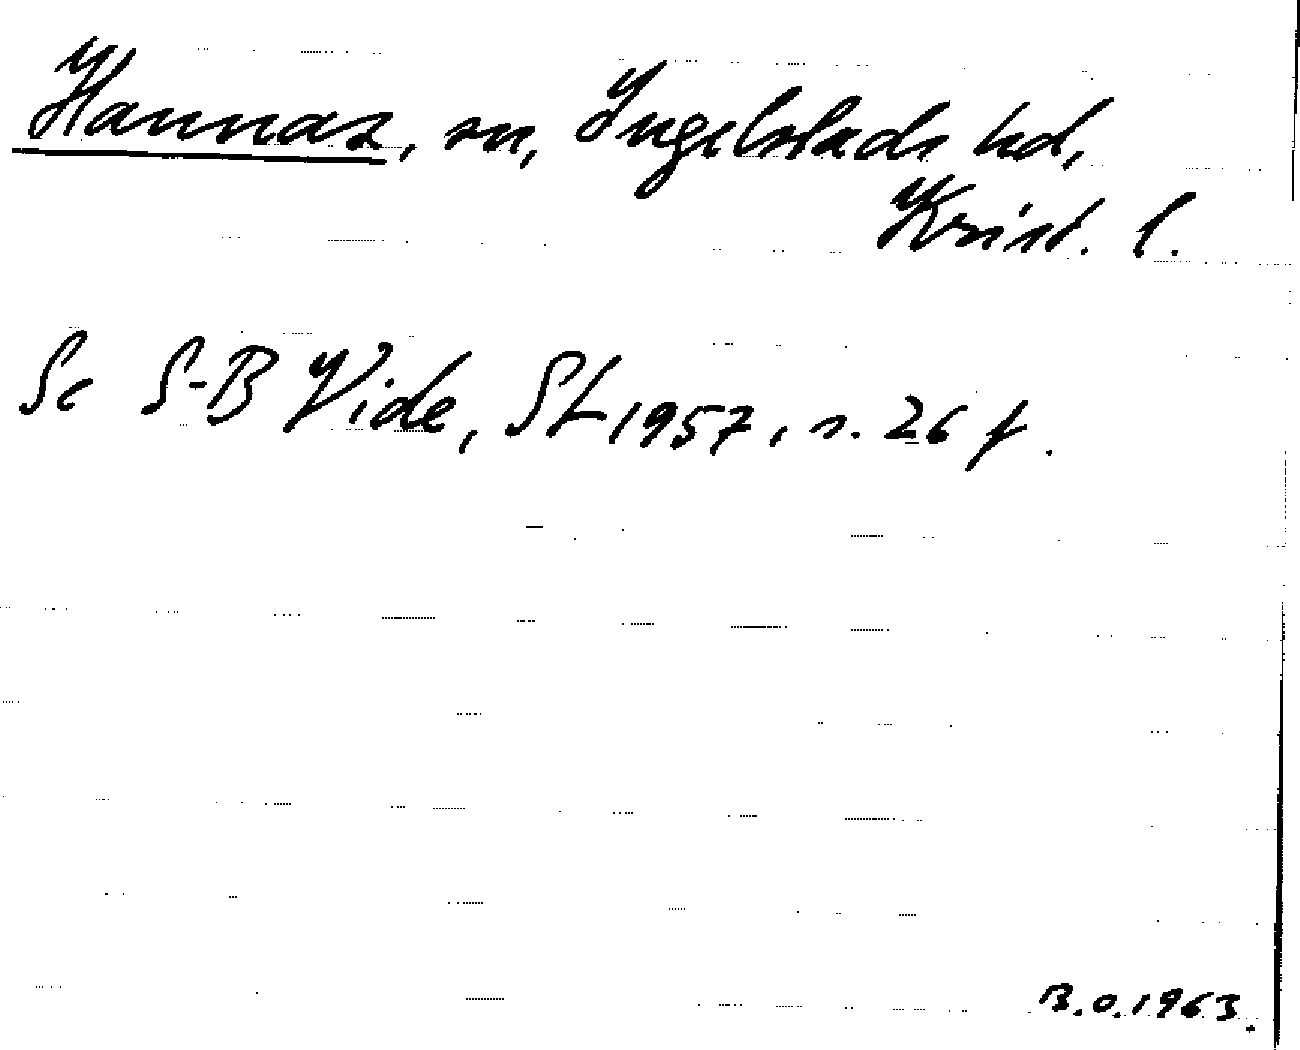 Hannas, sn, Ingelstads hd,
Krist. l.
Se S-B Vide, SL 1957, s. 26 f.
B.O. 1963.